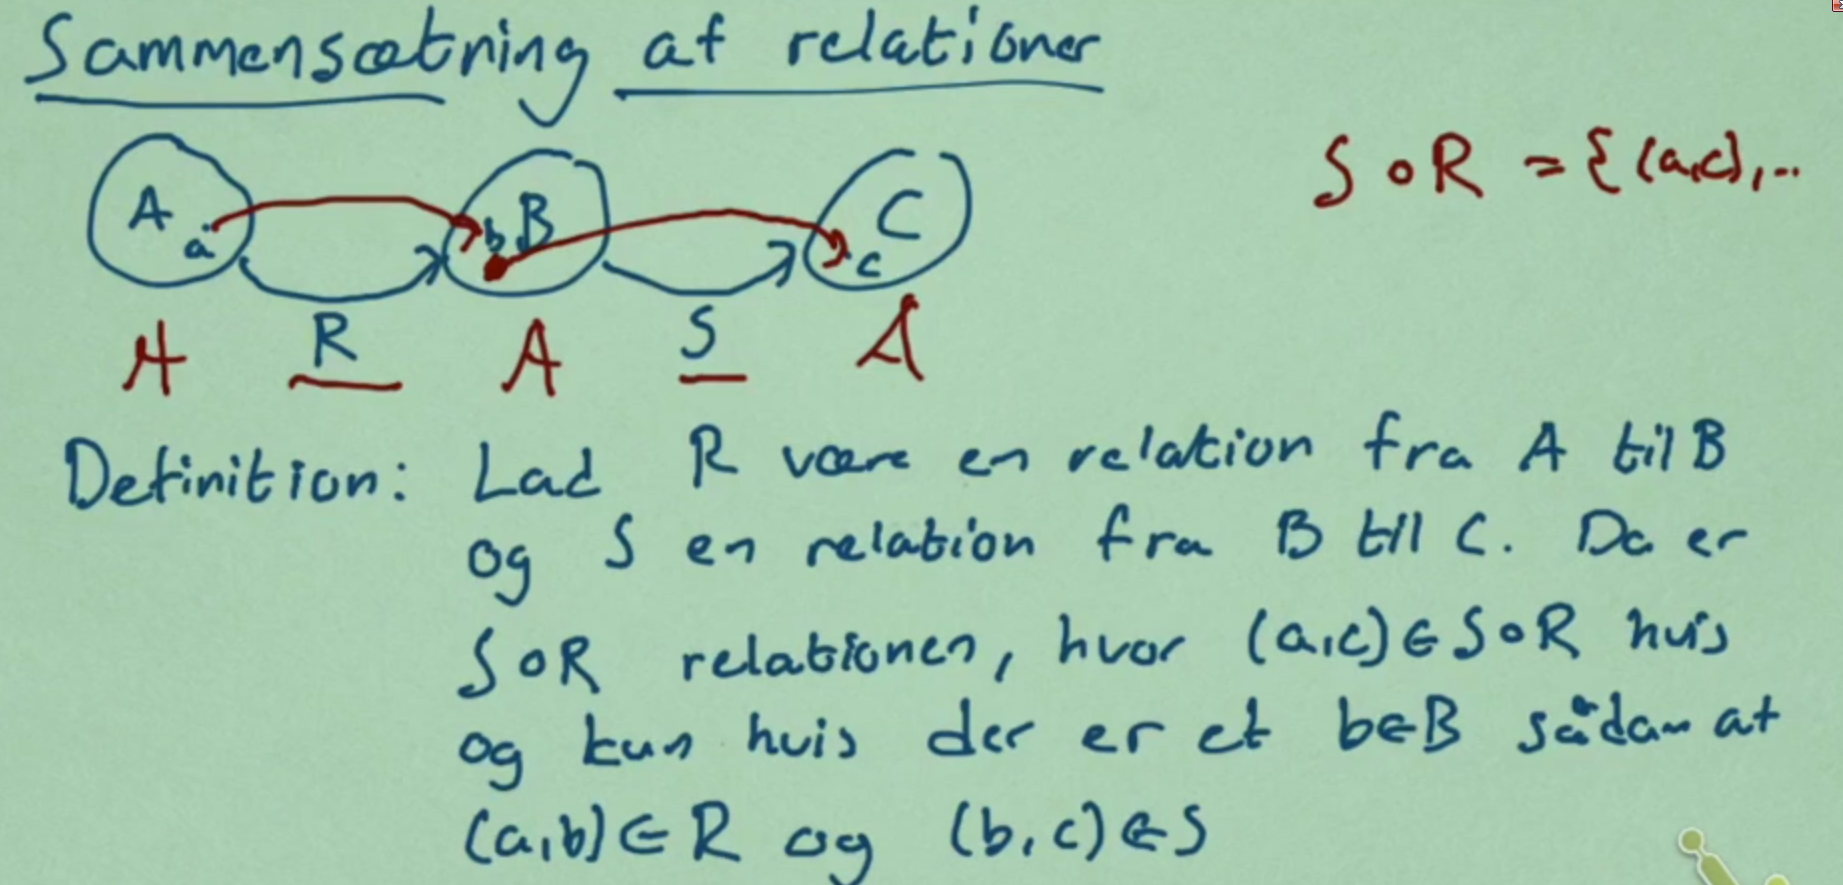 Sammensætning af relationer
S∘R = {(a,c),...
A a b B C c
R S
A A A
Definition: Lad R være en relation fra A til B
og S en relation fra B til C. Da er
S∘R relationen, hvor (a,c)∈S∘R hvis
og kun hvis der er et b∈B sådan at
(a,b)∈R og (b,c)∈S